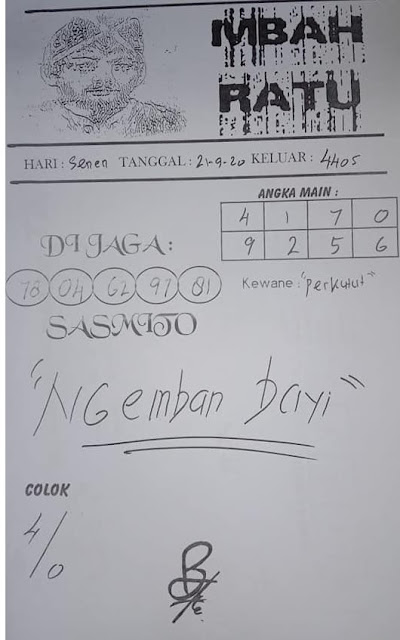 MBAH
RATU
HARI : Senen TANGGAL : 21-9-20 KELUAR : 4405
ANGKA MAIN :
4 1 7 0
9 2 5 6
DI JAGA :
78 04 62 97 81
Kewane : "perkutut"
SASMITO
"NGemban bayi"
COLOK
4/0